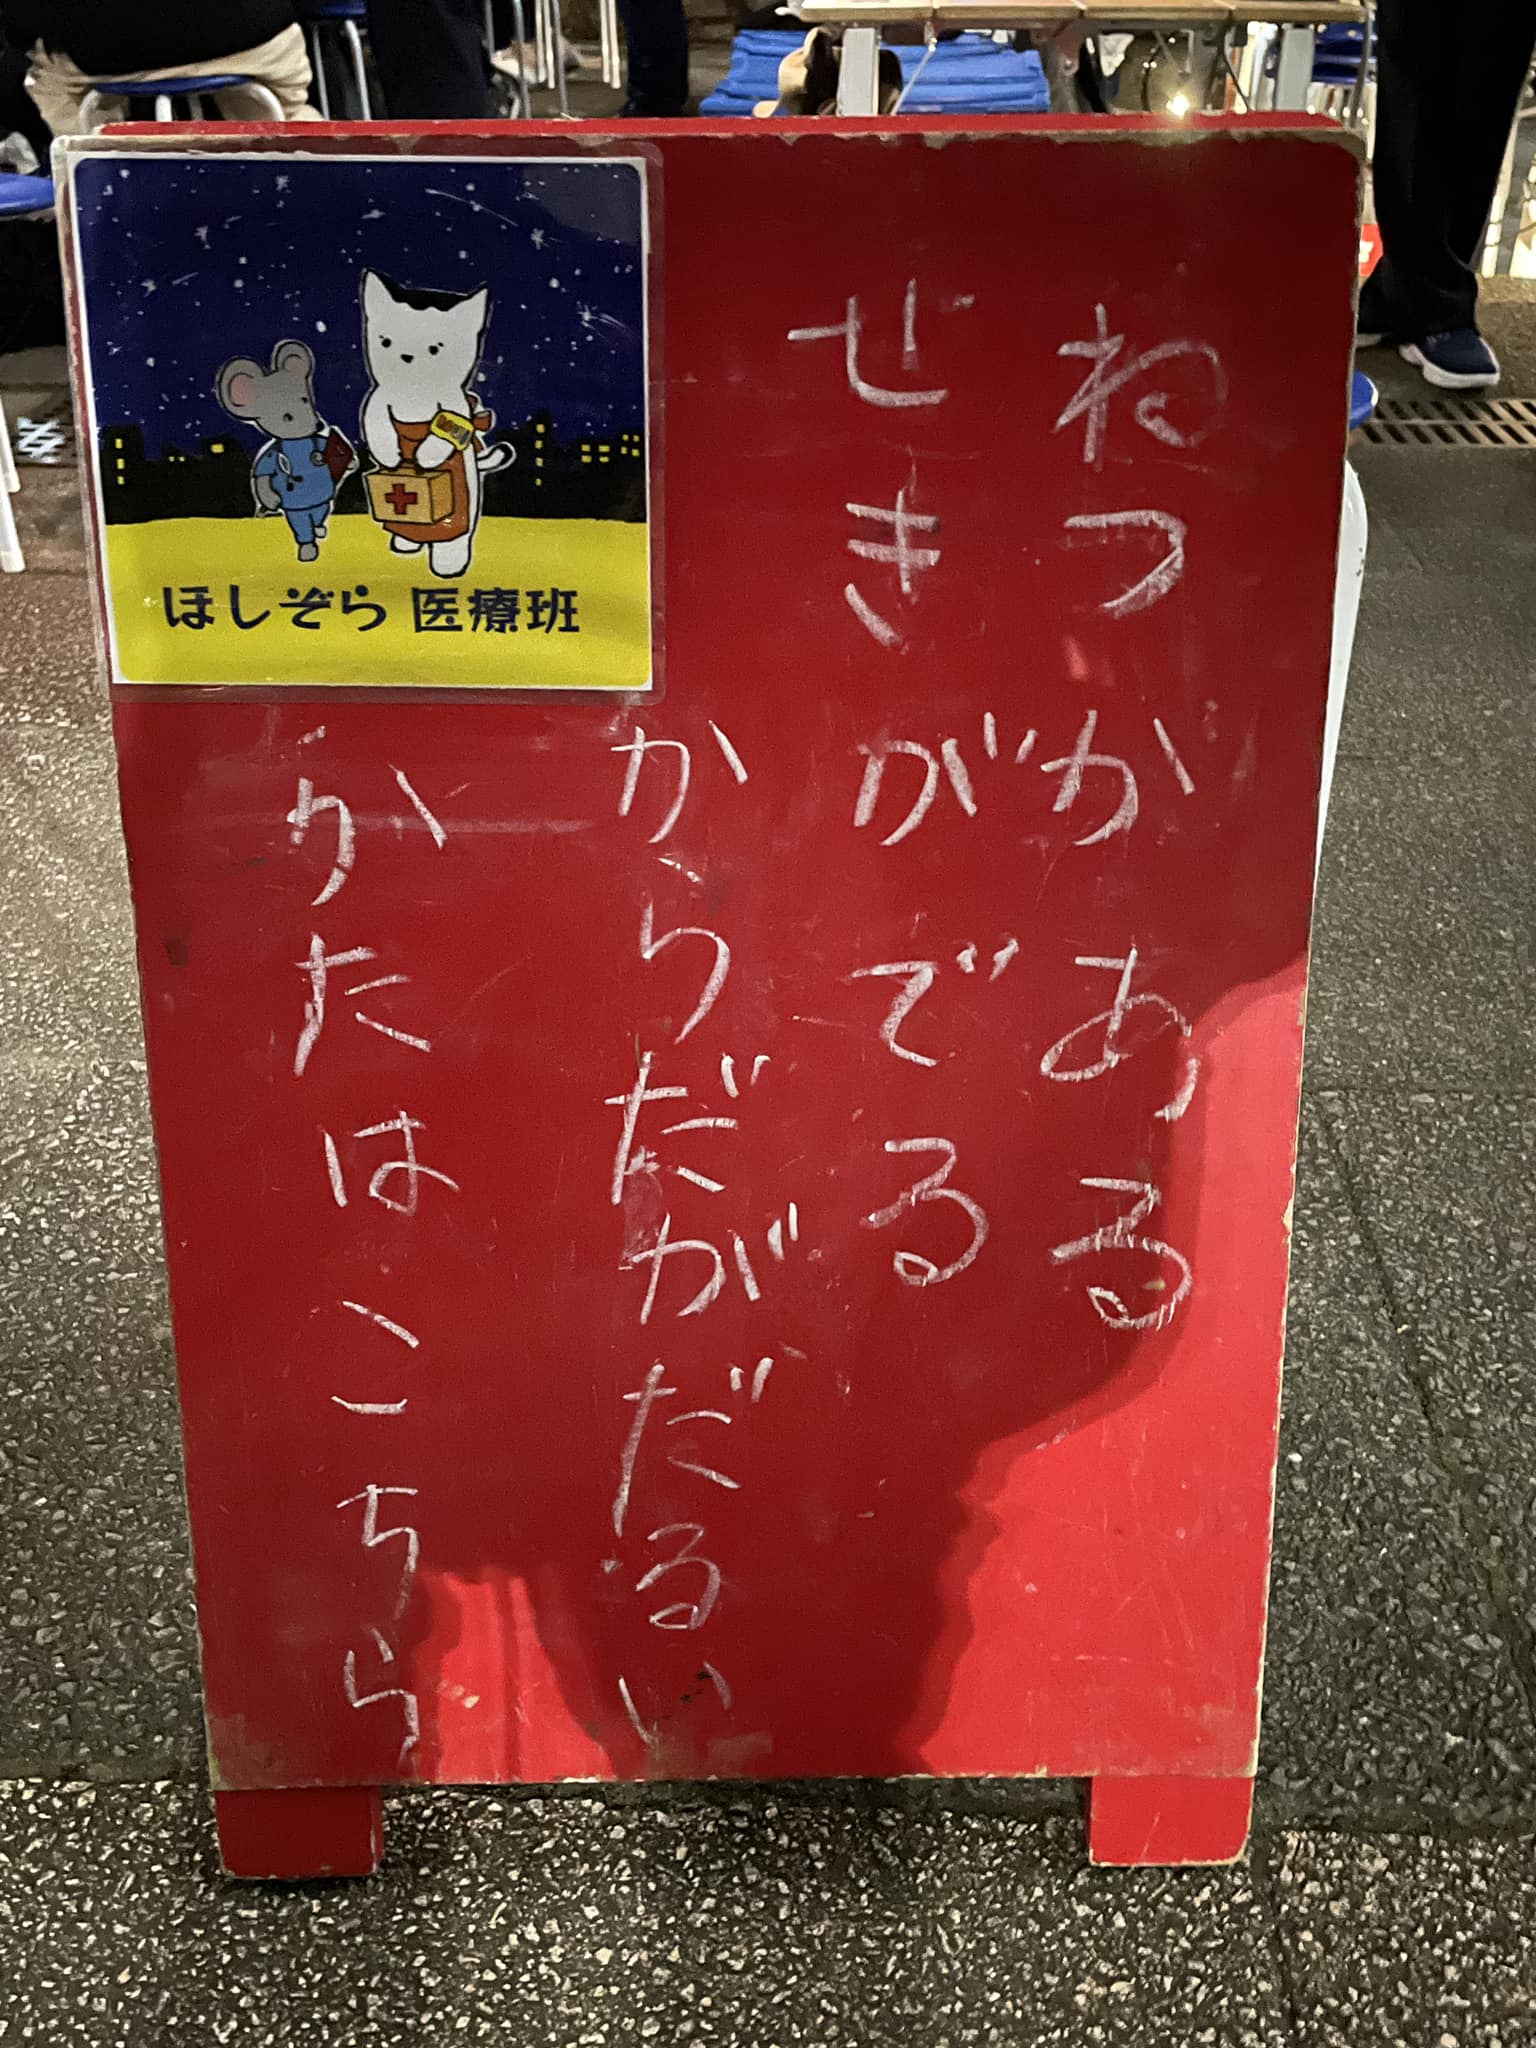 ほしぞら 医療班
ねつがある
せきがでる
からだがだるい
かたはこちら